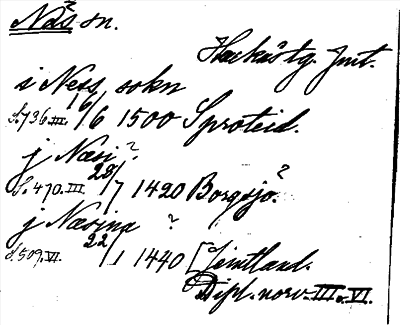 Näs sn.
Hackås tg. Jmt.
i Ness sokn
S. 736. III. 16/6 1500 Sproteid.
j Næsi ?
S. 470. III. 28/7 1420 Borgsjö. ?
j Næsina ?
S. 509. VI. 22/1 1440 [Jemtland.
Dipl. norv. III. o. VI.